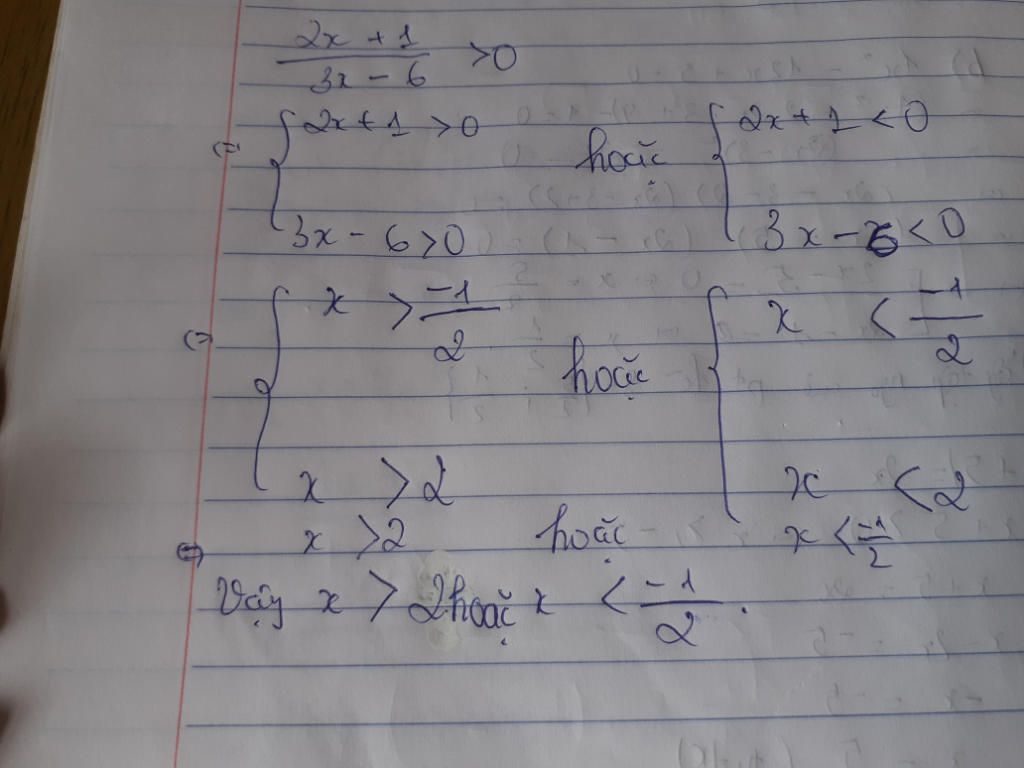 2x + 1
/ 3x - 6 > 0
⇔ { 2x + 1 > 0 hoặc { 2x + 1 < 0
3x - 6 > 0 3x - 6 < 0
⇔ { x > -1/2 hoặc { x < -1/2
x > 2 x < 2
⇔ x > 2 hoặc x < -1/2
Vậy x > 2 hoặc x < -1/2.